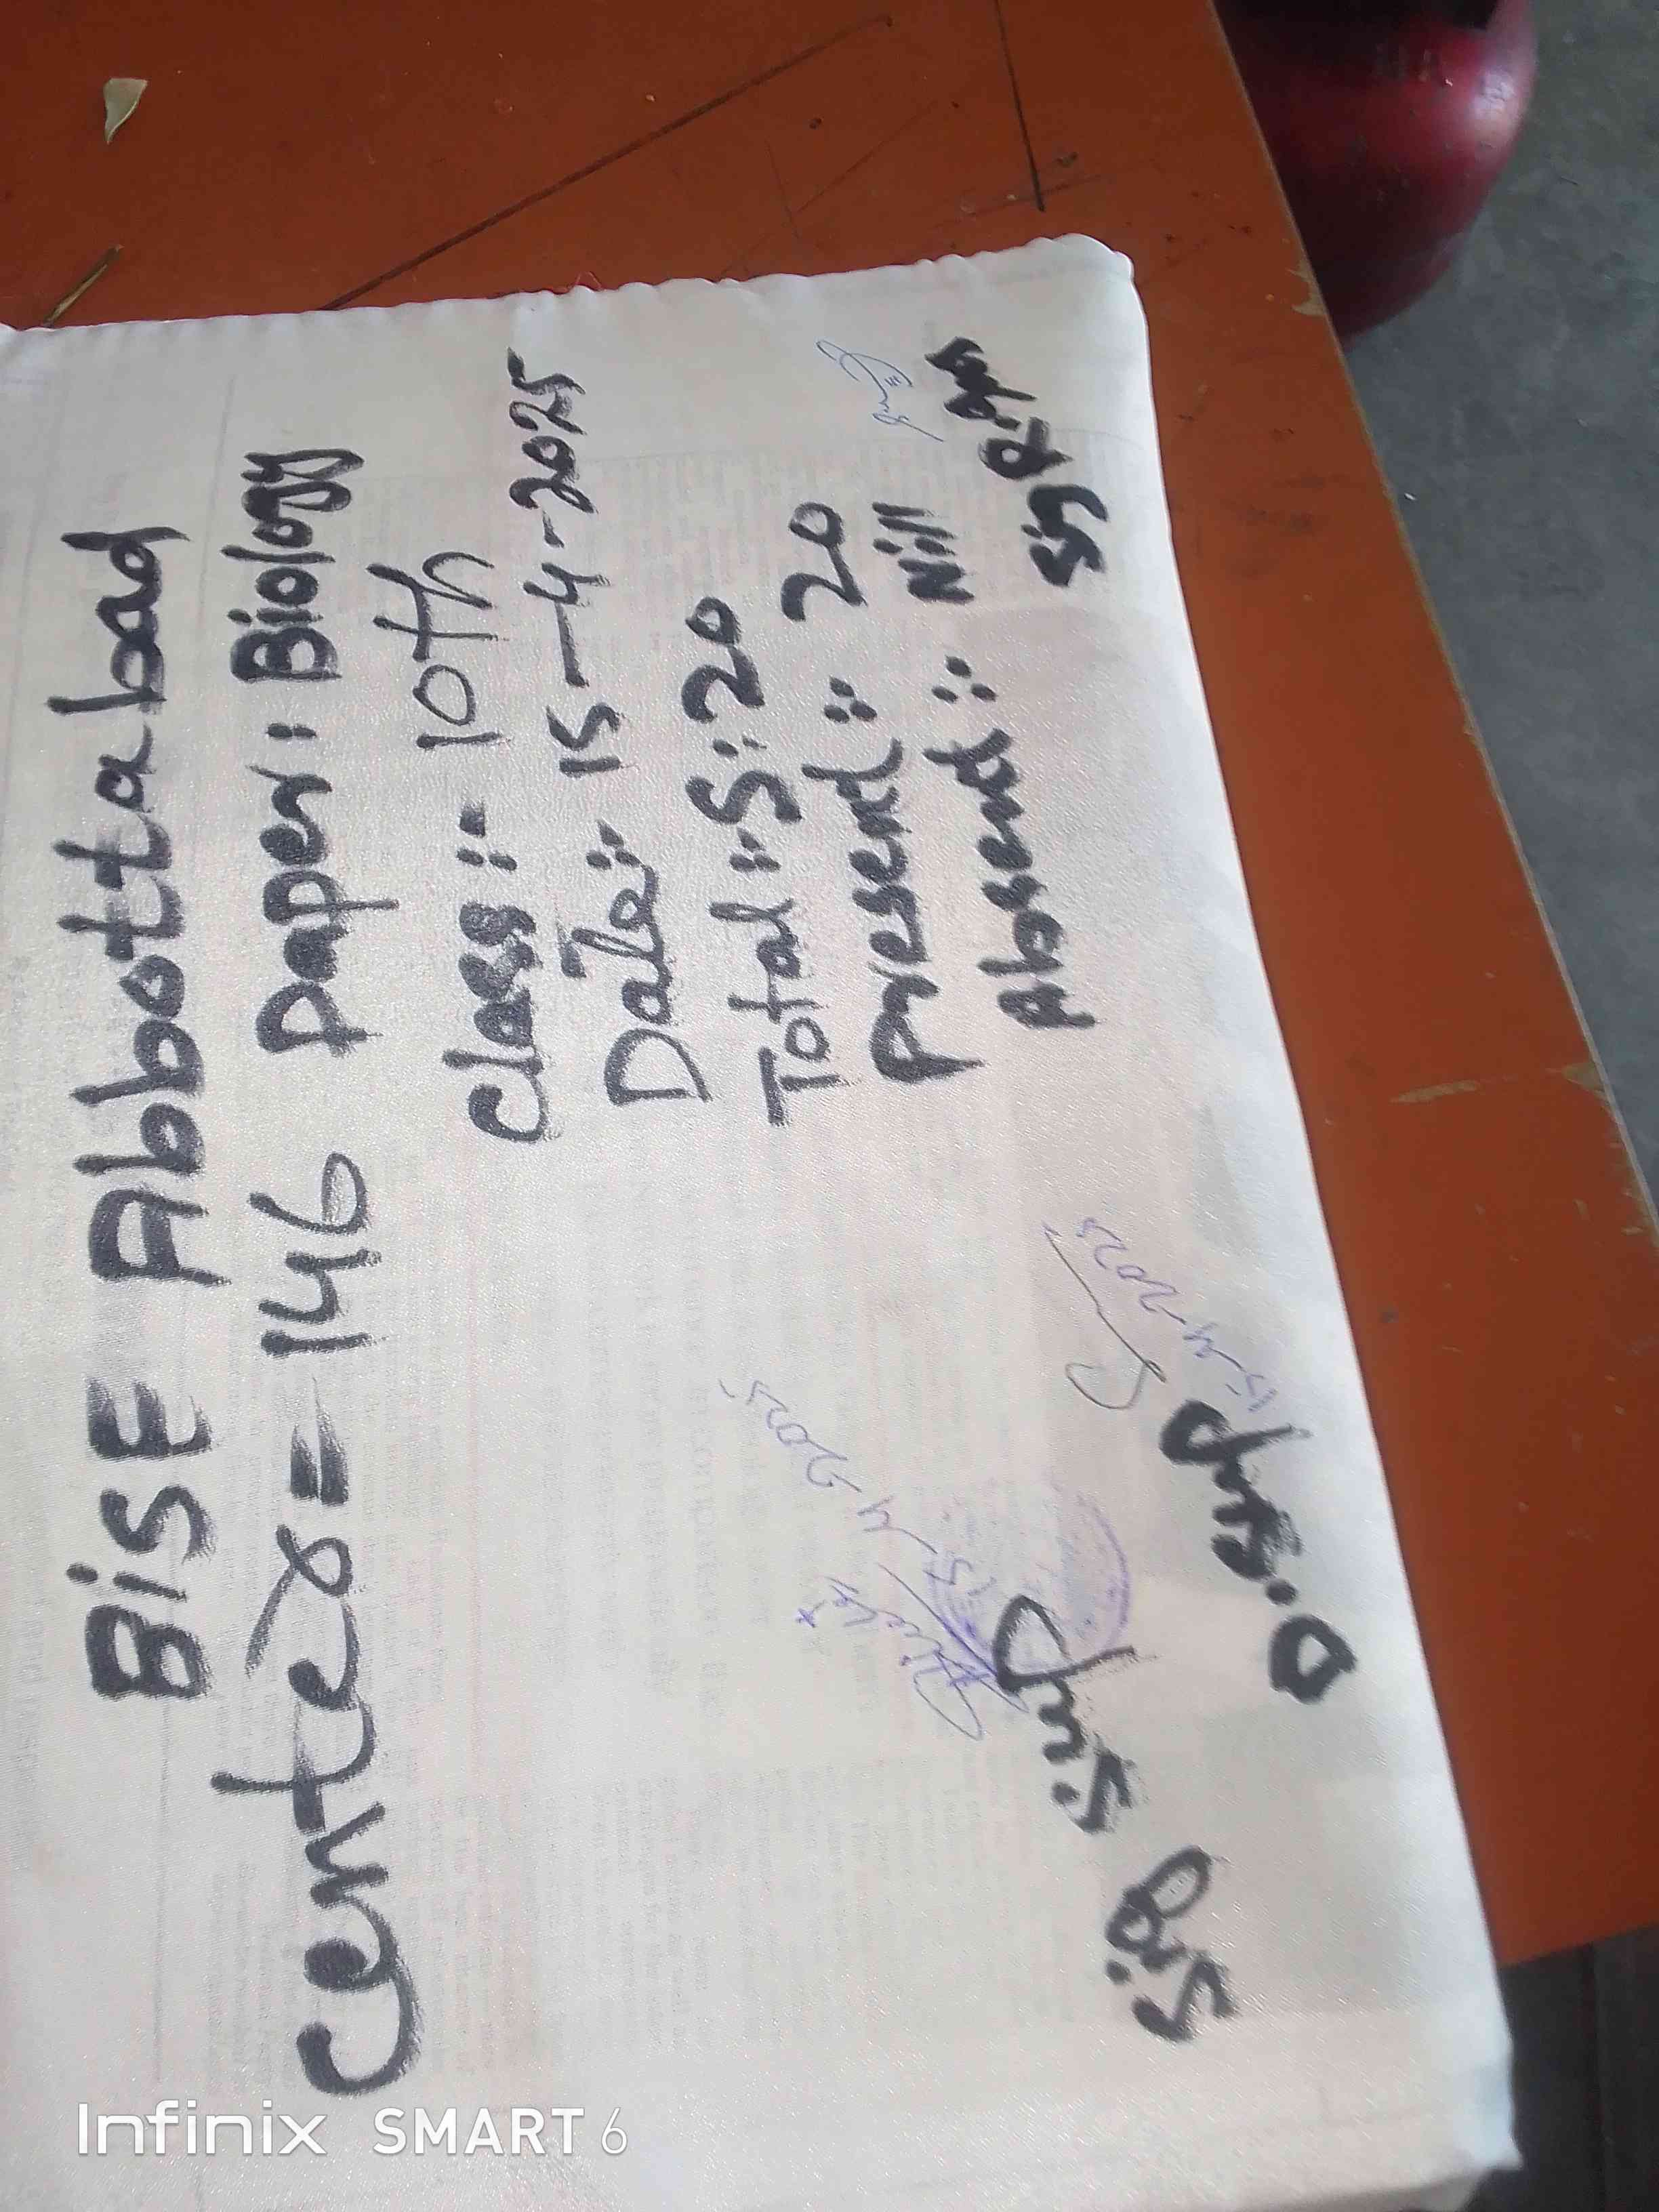 BiSE Abbottabad
Center = 146 paper: Biology
Class:- 10th
Date:- 15-4-2025
Total:- S: 20
Present:- 20
Absend:- Nill
Sig R.I
Sig Sup
D.Sup
15 4 2025
15 4 2025
Infinix SMART 6